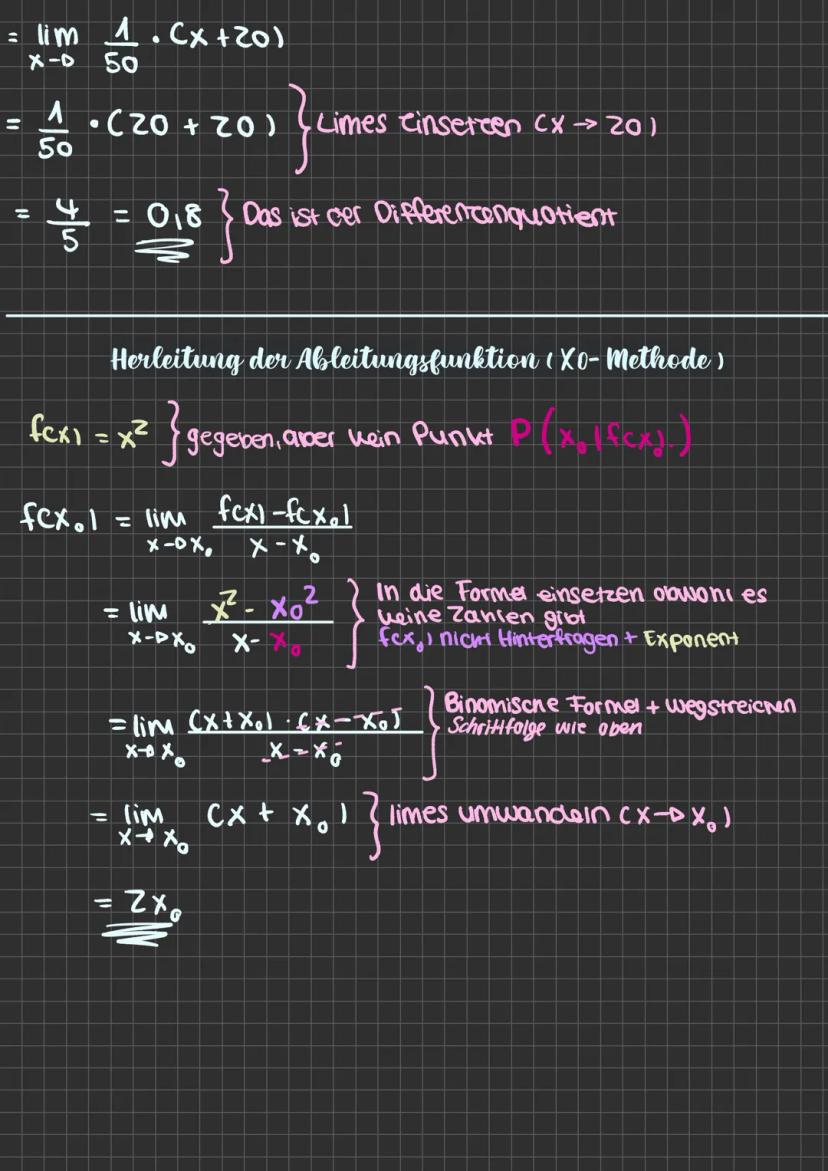 = lim 1/50 · (x+20)
x→
= 1/50 · (20 + 20) } Limes einsetzen (x → 20)
= 4/5 = 0,8 } Das ist der Differenzenquotient
Herleitung der Ableitungsfunktion (X0- Methode)
f(x) = x² } gegeben, aber kein Punkt P(x₀|f(x₀))
f(x₀) = lim f(x)-f(x₀) / x-x₀
x→x₀
= lim x² - x₀² / x-x₀ } In die Formel einsetzen obwohl es
x→x₀ keine Zahlen gibt
f(x₀) nicht Hinterfragen + Exponent
= lim (x+x₀) · (x-x₀) / x-x₀ } Binomische Formel + wegstreichen
x→x₀ Schrittfolge wie oben
= lim (x + x₀) } limes umwandeln (x→x₀)
x→x₀
= 2x₀